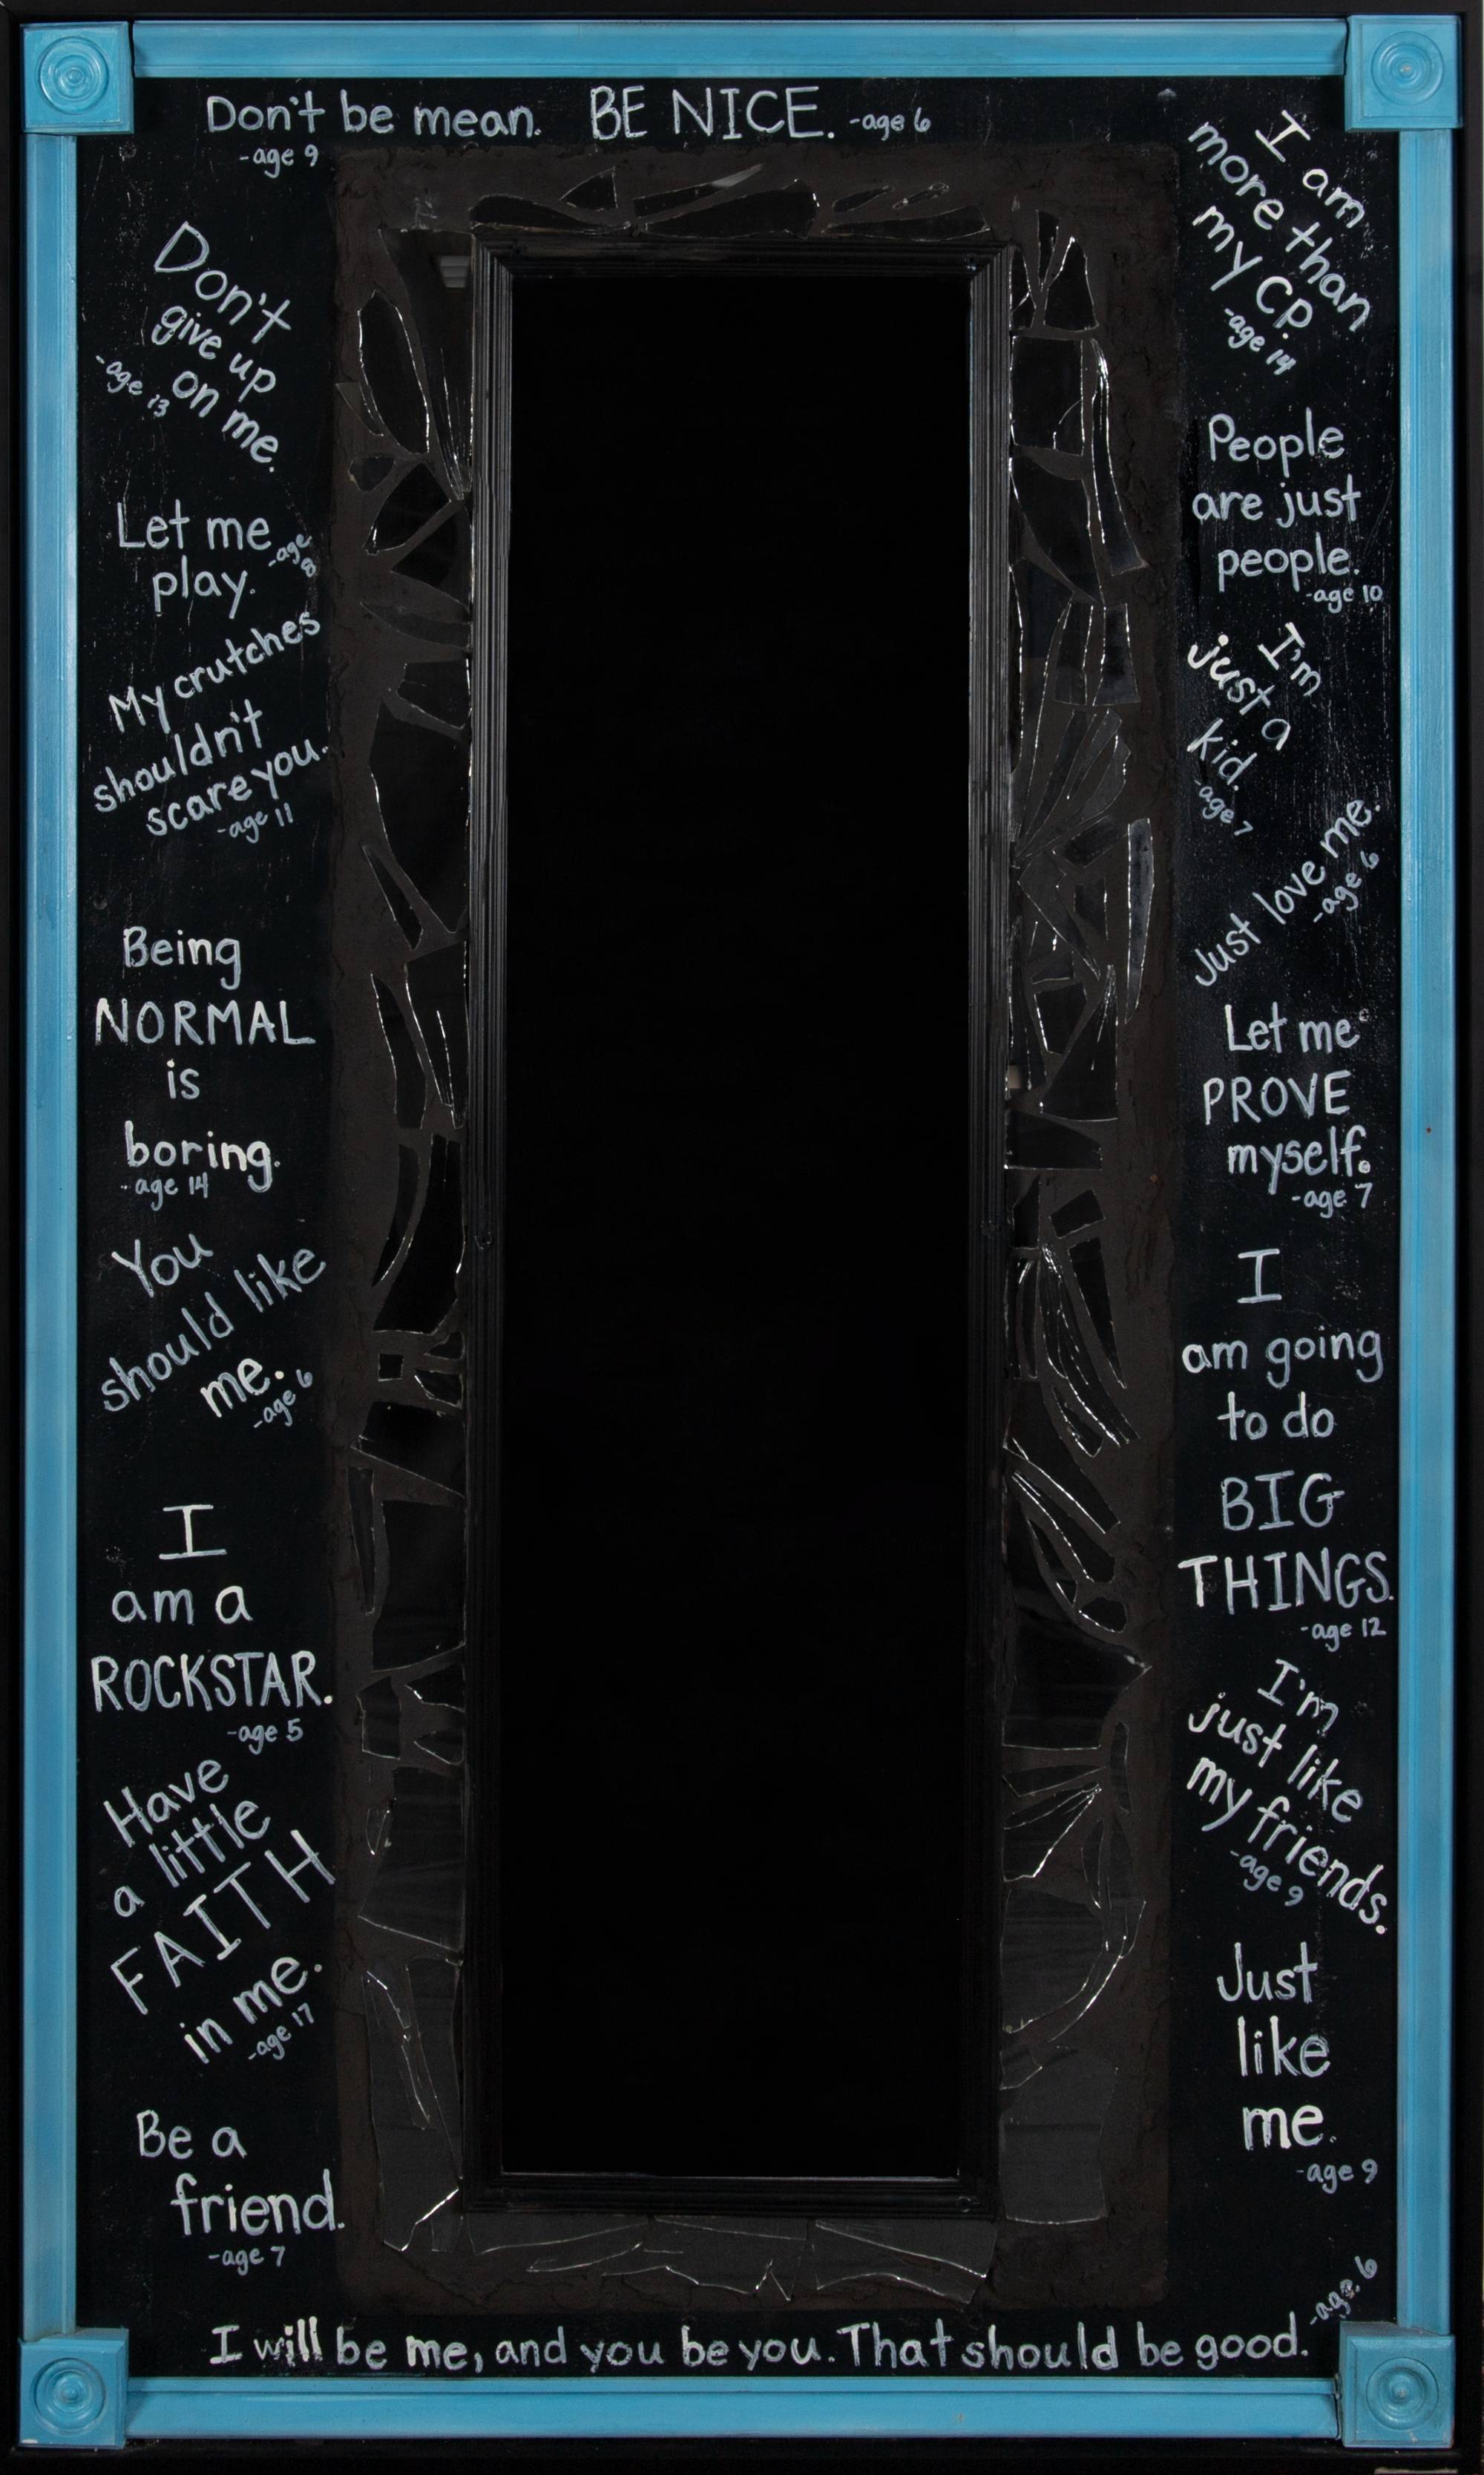 Don't be mean.
-age 9
BE NICE. -age 6
Don't
give up
on me.
-age 13
Let me
play.
-age 8
My crutches
shouldn't
scare you.
-age 11
Being
NORMAL
is
boring.
-age 14
You
should like
me.
-age 6
I
am a
ROCKSTAR.
-age 5
Have
a little
FAITH
in me.
-age 17
Be a
friend.
-age 7
I am
more than
my CP.
-age 14
People
are just
people.
-age 10
I'm
just a
kid.
-age 7
Just love me.
-age 6
Let me
PROVE
myself.
-age 7
I
am going
to do
BIG
THINGS.
-age 12
I'm
just like
my friends.
-age 9
Just
like
me.
-age 9
I will be me, and you be you. That should be good.
-age 6